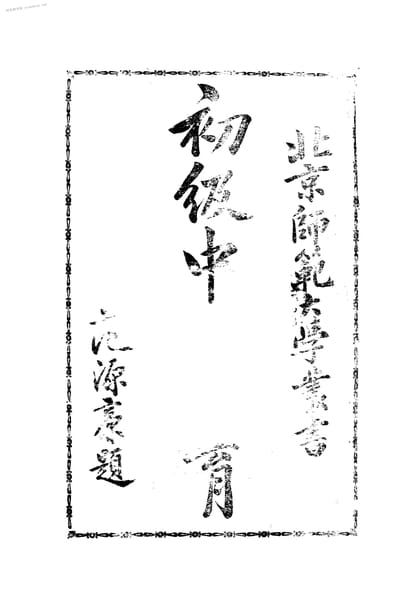 北京師範大學叢書
初級中 育
范源廉題